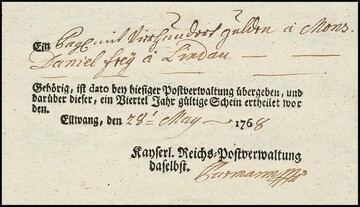 Ein Pacq mit Vierhundert Gulden à Mons.
Daniel Freÿ à Lindau
Gehörig, ist dato bey hiesiger Postverwaltung übergeben, und
darüber dieser, ein Viertel Jahr gültige Schein ertheilet wor
den.
Ellwang, den 28.t May 1768
Kayserl. Reichs-Postverwaltung
daselbst.